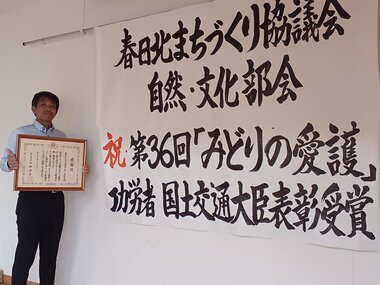 春日北まちづくり協議会
自然・文化部会
祝 第36回「みどりの愛護」
功労者 国土交通大臣表彰受賞
感謝状